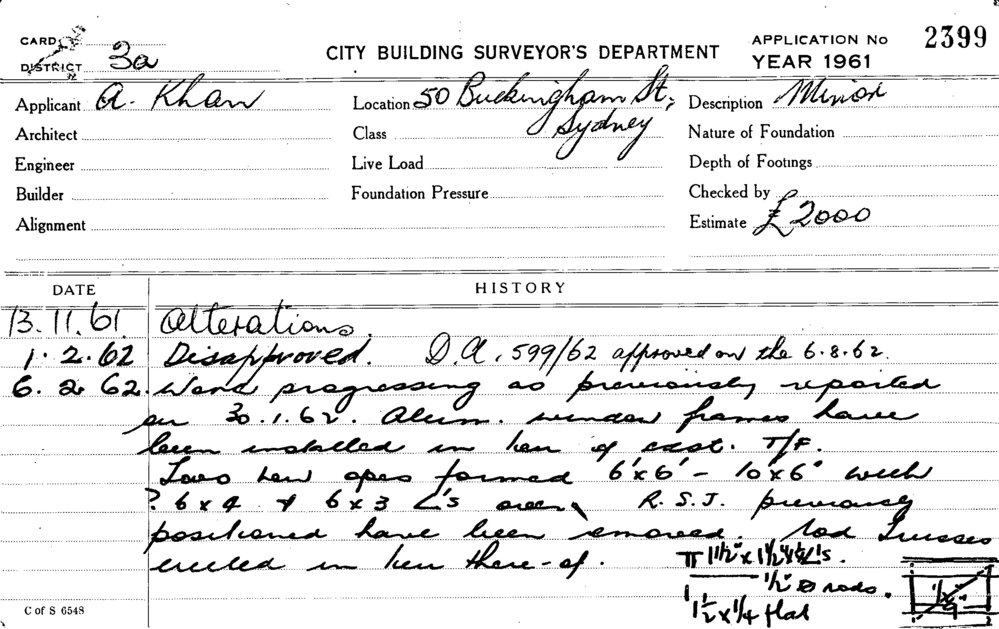 CARD
DISTRICT 3a
CITY BUILDING SURVEYOR'S DEPARTMENT
APPLICATION No 2399
YEAR 1961
Applicant A. Khan
Location 50 Buckingham St, Sydney
Description Minor
Architect
Class
Nature of Foundation
Engineer
Live Load
Depth of Footings
Builder
Foundation Pressure
Checked by
Alignment
Estimate £2000
DATE HISTORY
13.11.61 Alterations.
1.2.62 Disapproved. D.A. 599/62 approved on the 6.8.62.
6.2.62. Work progressing as previously reported
on 30.1.62. Alum. window frames have
been installed in lieu of exist. T/F.
Two new opes formed 6'x6' - 10'x6' with
? 6x4 & 6x3 L's over. R.S.J. previously
positioned have been removed. Rod Trusses
erected in lieu there-of.
1 1/2" x 1 1/2" x 1/4 L's.
1/2" ø rods.
1 1/2 x 1/4 flat
C of S 6548